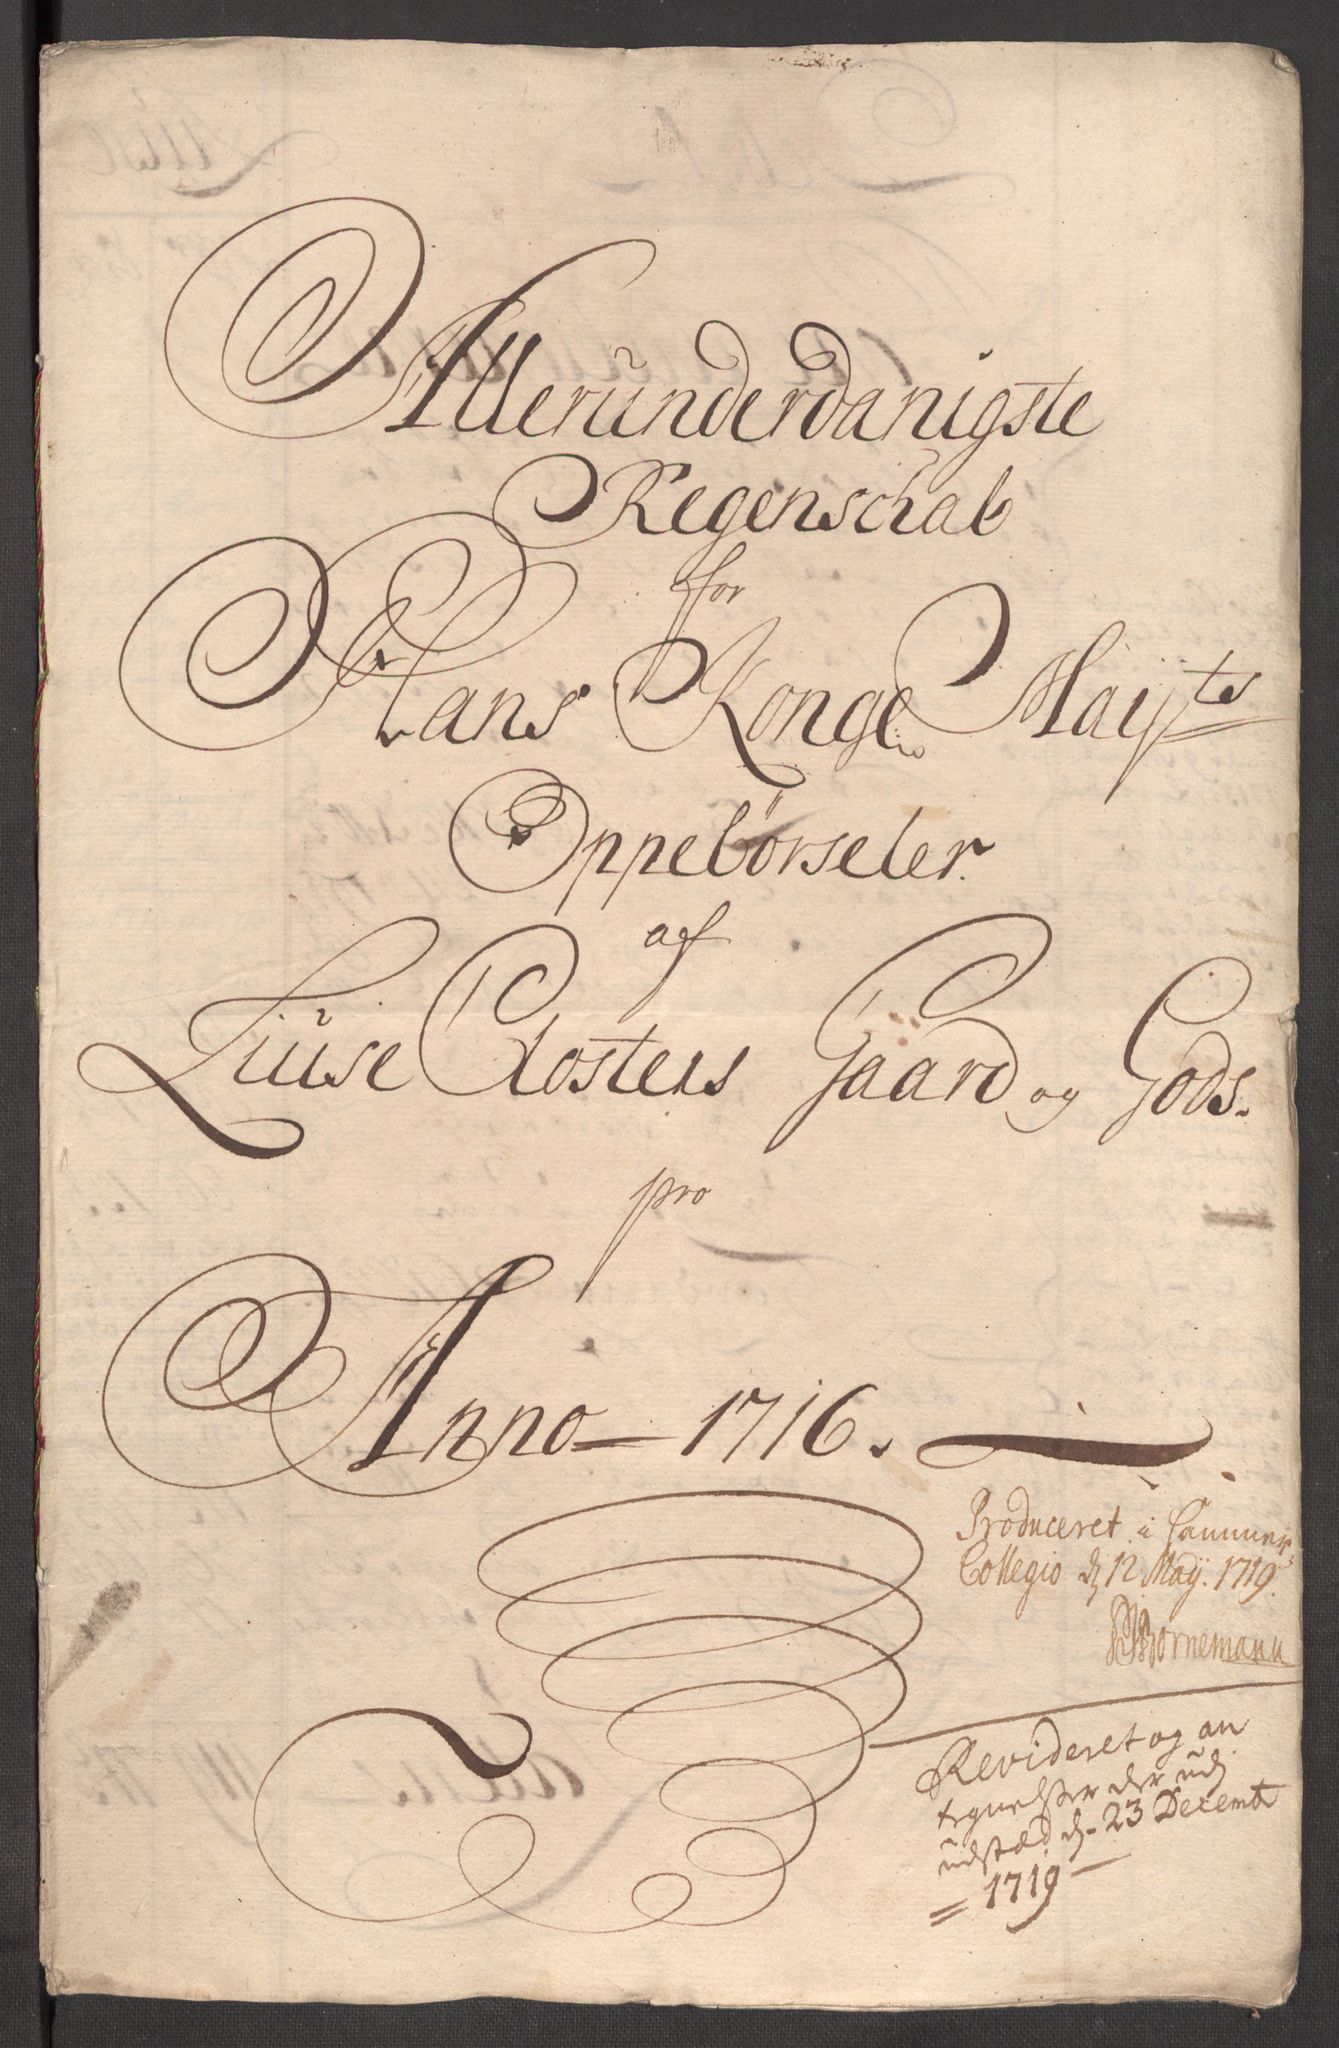 Allerunderdanigste
Regenschab
for
Hans Kongl. Mayts
Oppebörseler
af
Lüüse Closters Gaard og Gods.
pro
Anno 1716.
Produceret i Cammer
Collegio d 12 Maÿ. 1719.
Bornemann
Revideret og an
tegnelser der udj
udstæd d. 23 Decemb
1719